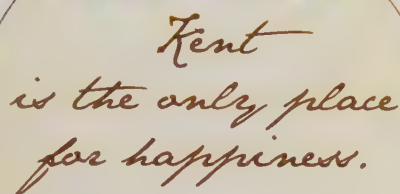 Kent
is the only place
for happiness.